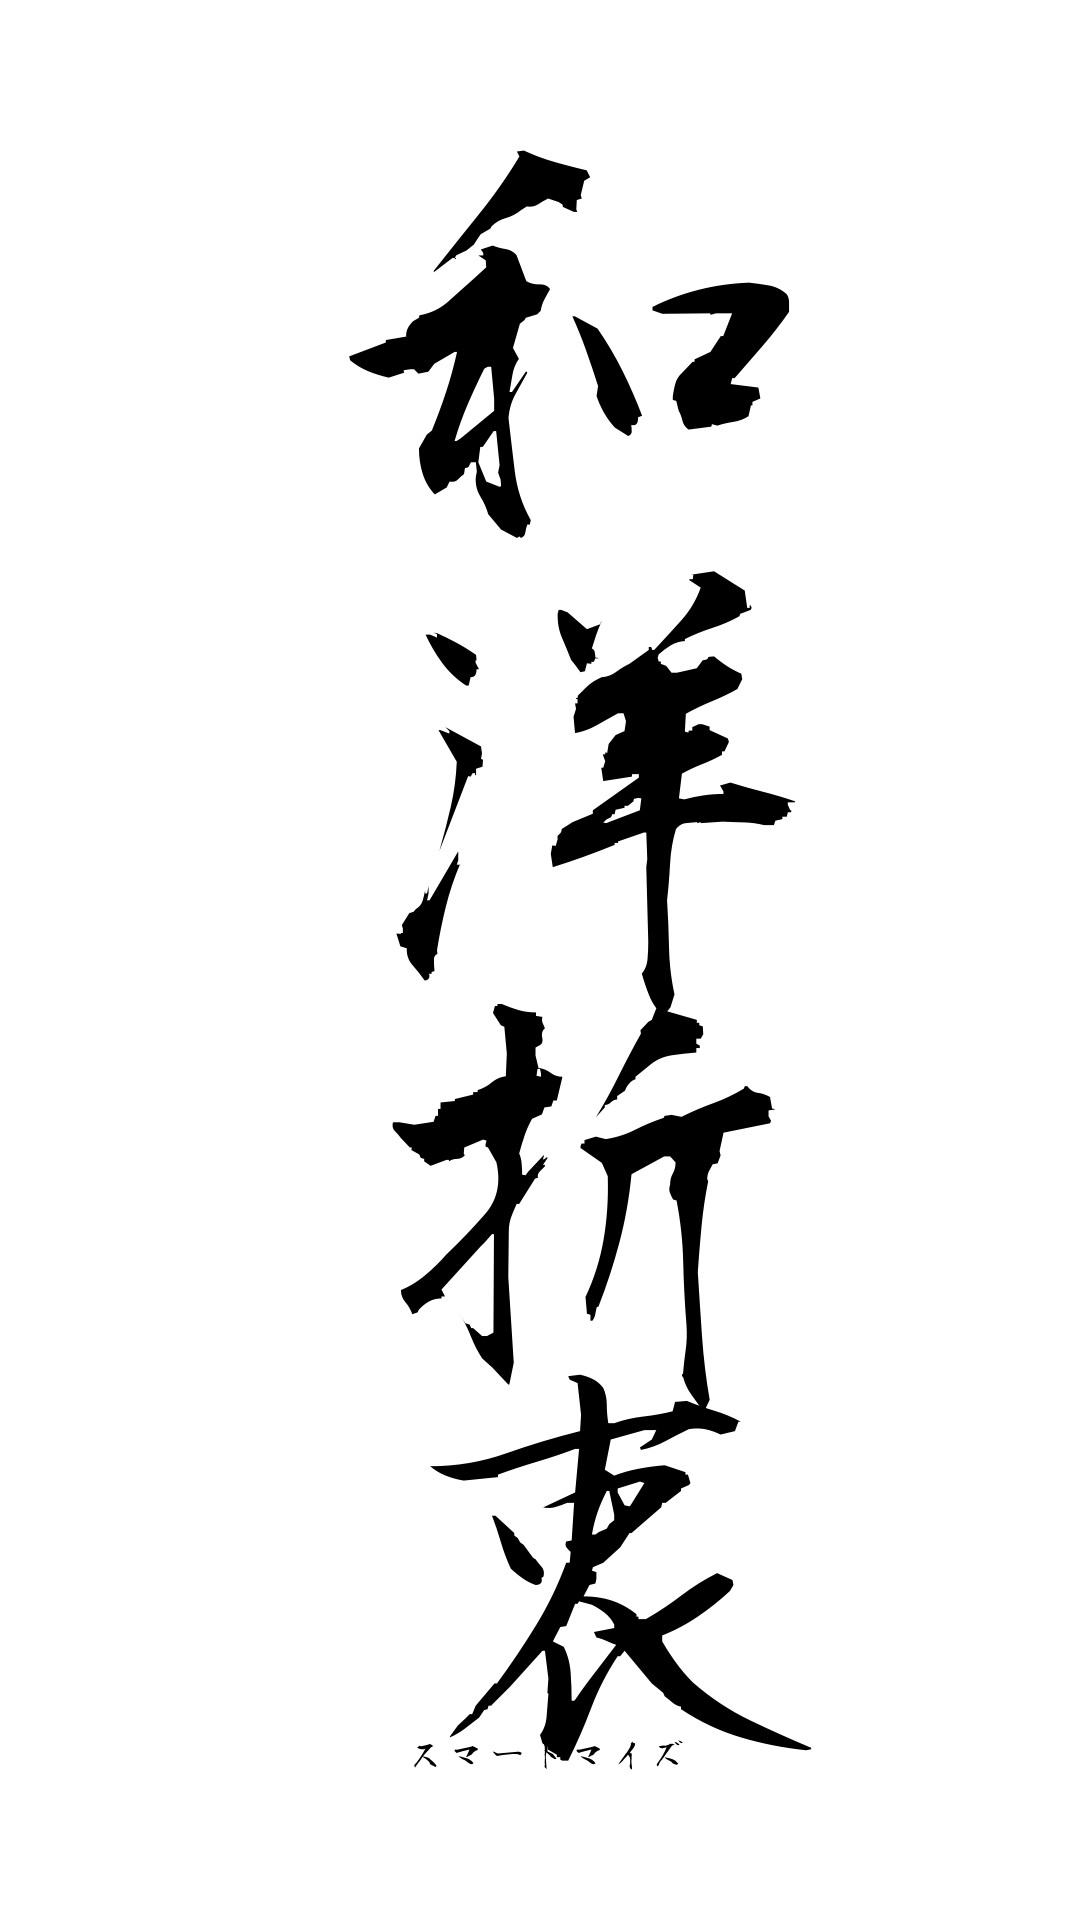 和洋折衷
スマートマイズ